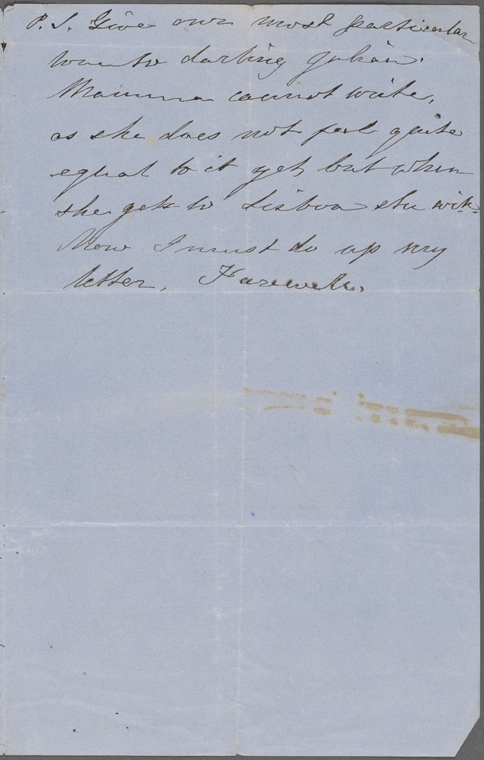 P. S. Give our most particular
love to darling Julian.
Mamma cannot write,
as she does not feel quite
equal to it yet, but when
she gets to Lisbon she will.
Now I must do up my
letter. Farewell.